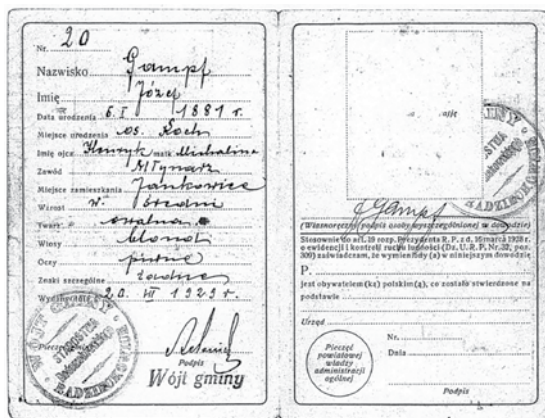 Nr. 20
Nazwisko Gampf
Imię Józef
Data urodzenia 6. I 1881 r.
Miejsce urodzenia os. Koch
Imię ojca Henryk matk. Michalina
Zawód Młynarz
Miejsce zamieszkania Jankowice
Wzrost w. średni
Twarz owalna
Włosy blond
Oczy piwne
Znaki szczególne żadne
Wydano dnia 20. III 1929 r.
Pieczęć
Podpis
Wójt gminy
WÓJT GMINY
RADZIEJOWSKI
J Gampf
(Własnoręczny podpis osoby wyszczególnionej w dowodzie)
Stosownie do art. 18 rozp. Prezydenta R. P. z d. 16 marca 1928 r.
o ewidencji i kontroli ruchu ludności (Dz. U. R. P. Nr. 32, poz.
309) zaświadczam, że wymieniony (a) w niniejszym dowodzie
P.
jest obywatelem (ką) polskim (ą), co zostało stwierdzone na
podstawie
Urząd
Pieczęć
powiatowej
władzy
administracji
ogólnej
Nr.
Dnia
Podpis